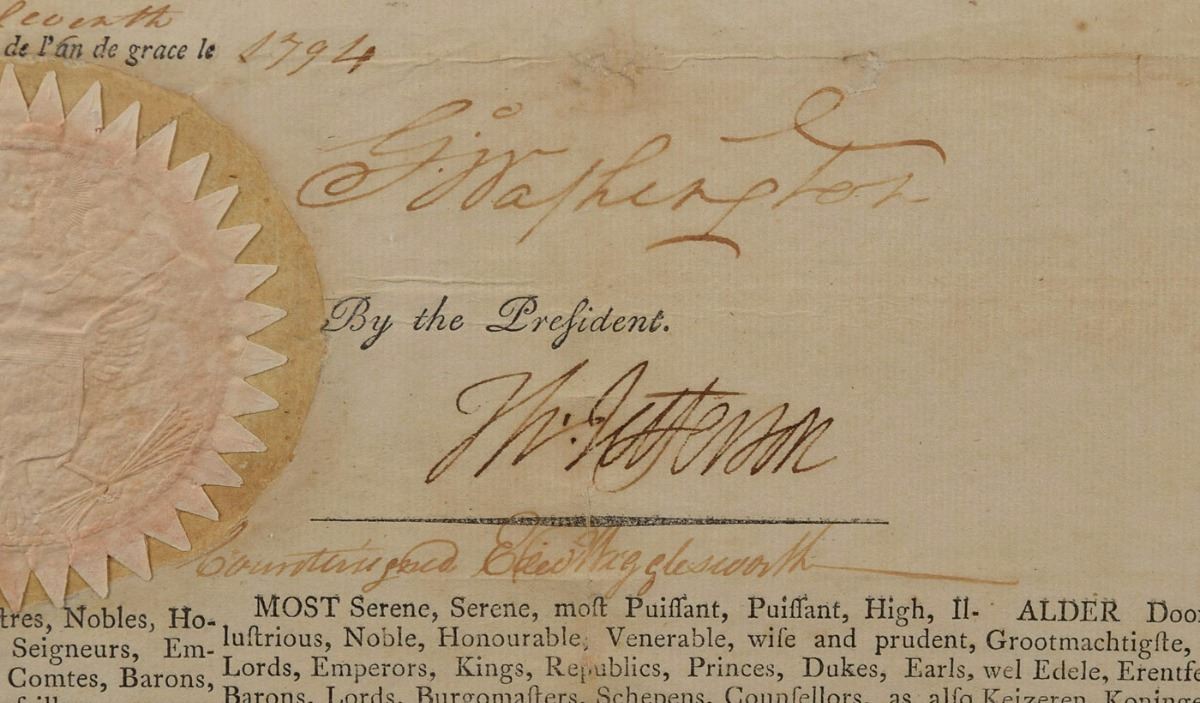 leventh
de l'an de grace le 1794
G:Washington
By the Preſident.
Th: Jefferson
Countersigned Wigglesworth
tres, Nobles, Ho-
Seigneurs, Em-
Comtes, Barons,
MOST Serene, Serene, moſt Puiſſant, Puiſſant, High, Il-
luſtrious, Noble, Honourable, Venerable, wiſe and prudent,
Lords, Emperors, Kings, Republics, Princes, Dukes, Earls,
Barons, Lords, Burgomaſters, Schepens, Counſellors, as alſo
ALDER Door
Grootmachtigſte,
wel Edele, Erentfe
Keizeren, Koninge